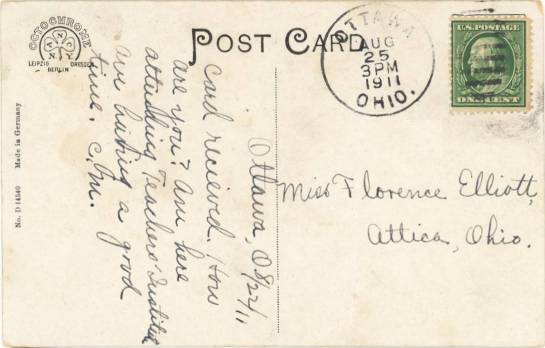 OCTOCHROME
ANCNY
LEIPZIG DRESDEN
BERLIN
POST CARD
OTTAWA
AUG
25
3PM
1911
OHIO.
U.S. POSTAGE
ONE CENT
No. D 14540 Made in Germany
Ottawa, O 8/22/11
Card recieved. How
are you? Am here
attending Teachers' Institute
Am having a good
time. C.M.
Miss Florence Elliott,
Attica, Ohio.